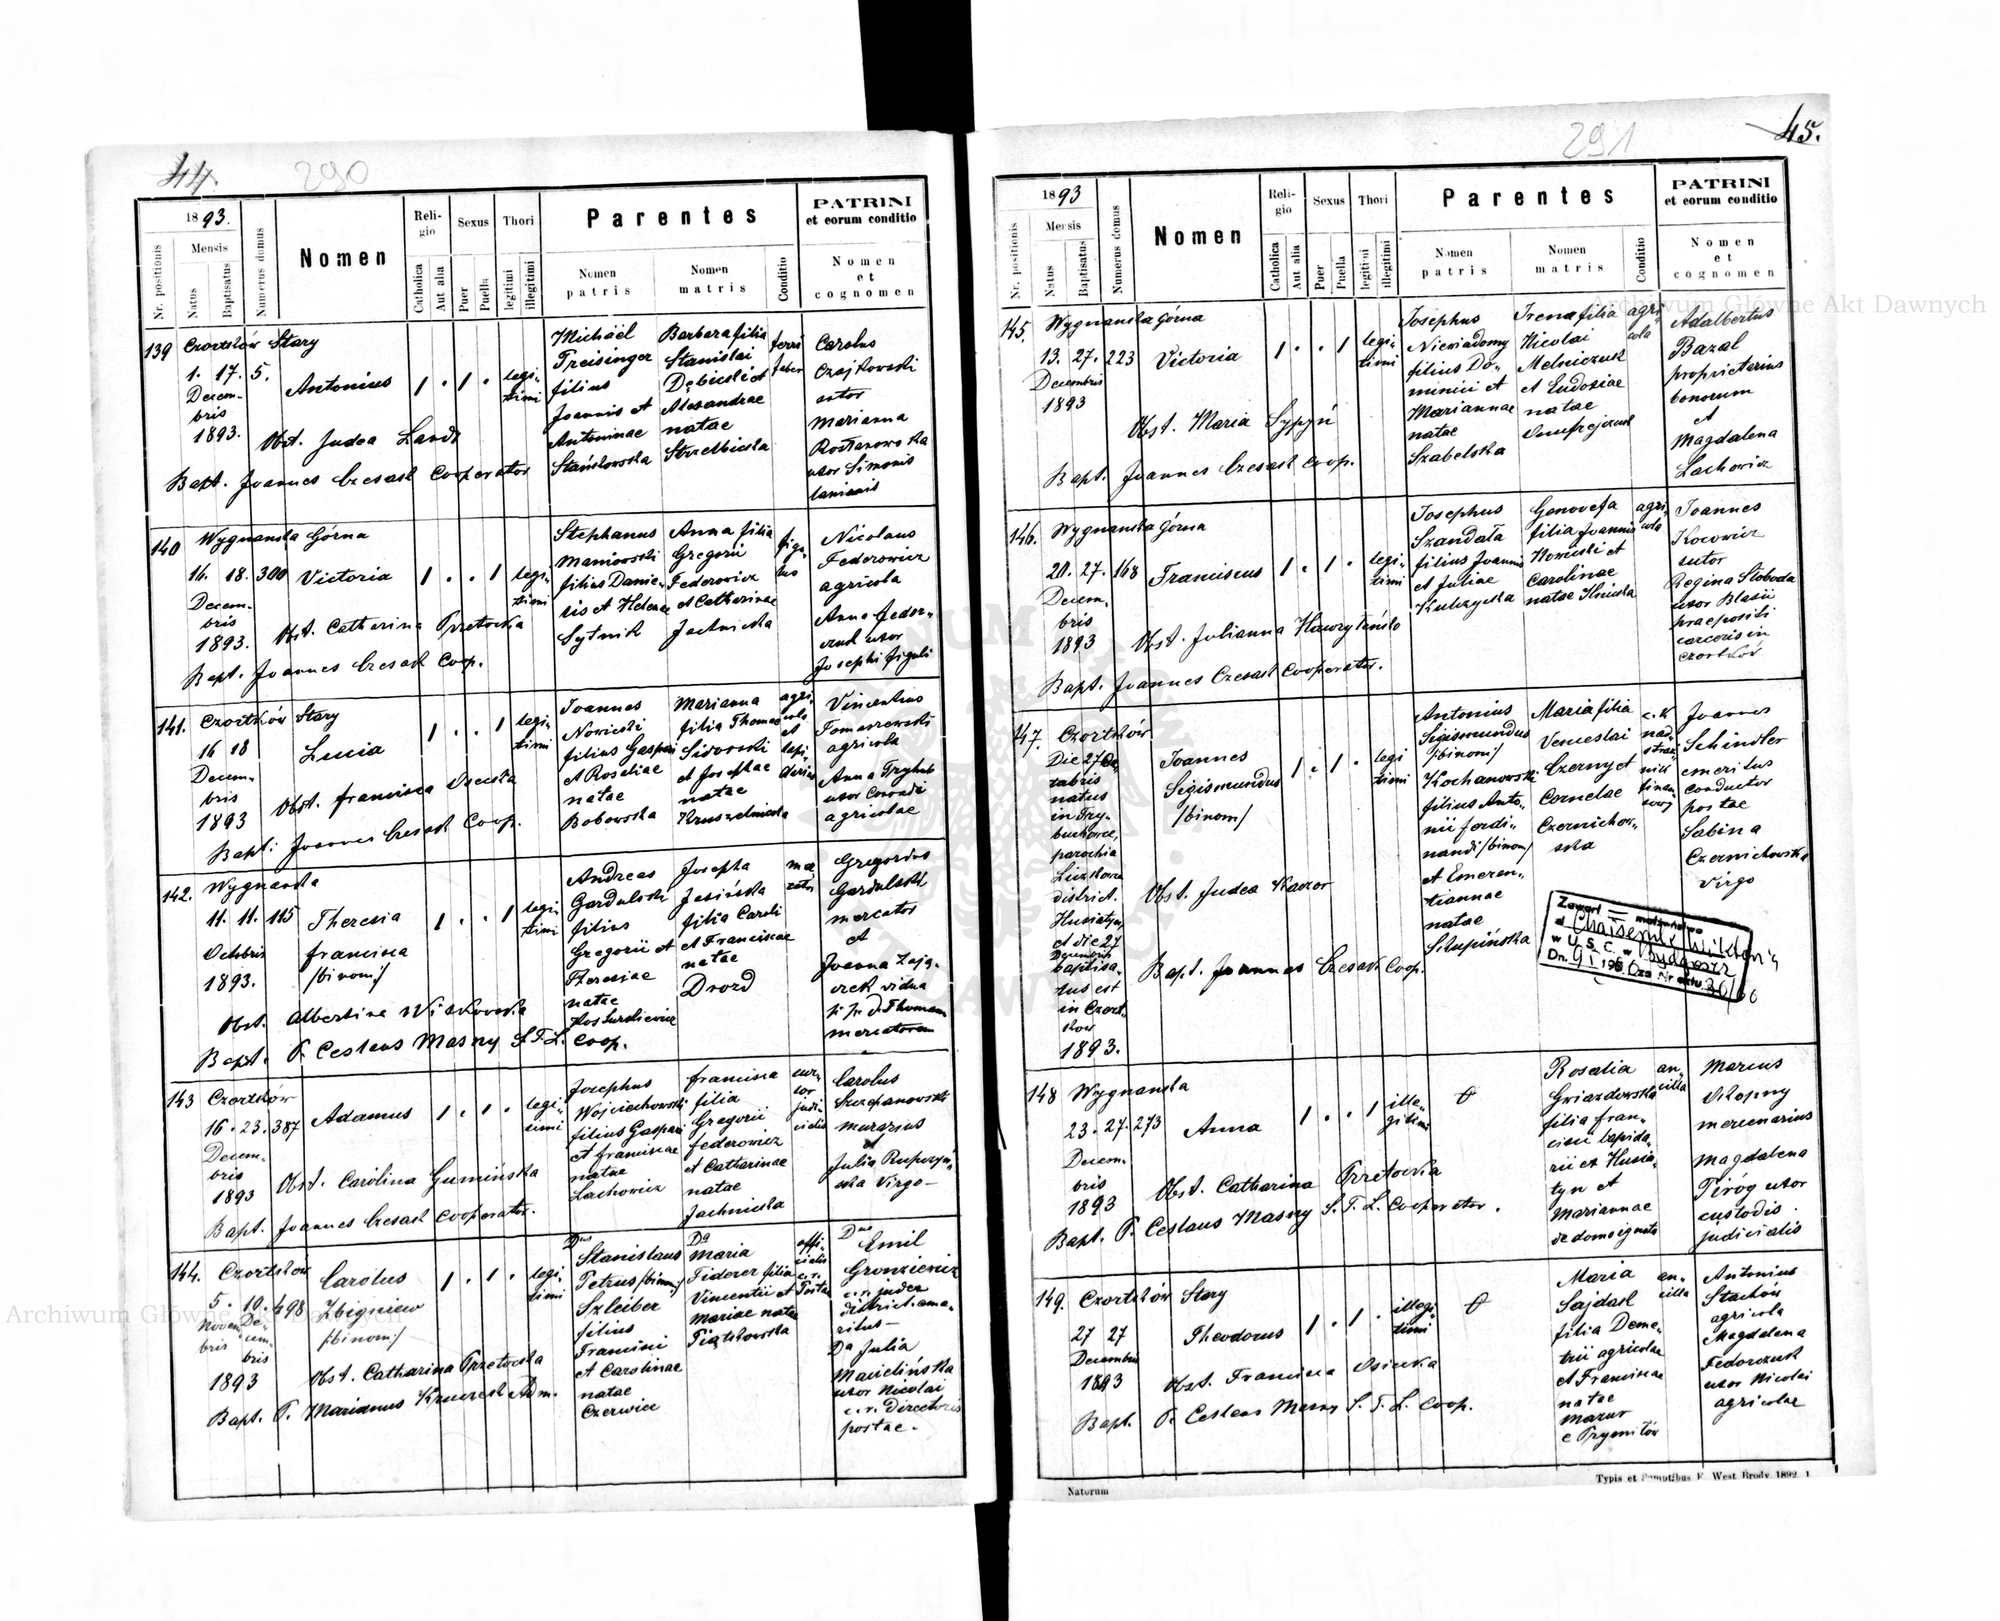 44.
290
1893.
Nr. positionis
Mensis
Natus
Baptisatus
Numerus domus
Nomen
Reli-
gio
Catholica
Aut alia
Sexus
Puer
Puella
Thori
legitimi
illegitimi
Parentes
Nomen
patris
Nomen
matris
Conditio
PATRINI
et eorum conditio
Nomen
et
cognomen
139
Czortków Stary
1. 17. 5.
Decem-
bris
1893.
Antonius
1 . 1 .
legi-
timi
Obst. Judea Landt
Bapt. Joannes Czesack Cooperator
Michaël
Preisinger
filius
Joannis et
Antoninae
Barbara filia
Stanislai
Dębicki et
Alexandrae
natae
Strzelbicka
ferri
faber
Carolus
Czajkowski
sutor
Marianna
uxor Simonis
140
Wygnanka Górna
16. 18. 300
Decem-
bris
1893.
Victoria
1 . . 1
legi-
timi
Obst. Catharina Przetocka
Bapt. Joannes Czesack Coop.
Stephanus
Maniowski
filius Danie-
lis et Helenae
Sytnik
Anna filia
Gregorii
Federowicz
et Catharinae
Jachnicka
figu-
lus
Nicolaus
Federowicz
agricola
Anna Fedor-
czuk uxor
Josephi figuli
141.
Czortków Stary
16 18
Decem-
bris
1893
Lucia
1 . . 1
legi-
timi
Obst. Francisca Osiecka
Bapt: Joannes Czesack Coop.
Joannes
Nowicki
filius Gaspari
et Rosaliae
natae
Bobowska
Marianna
filia Thomae
Sidorski
et Josephae
natae
Kruszelnicka
agri-
cola
et
lapi-
darius
Vincentius
Tomaszewski
agricola
Anna Tryhub
uxor Conradi
agricolae
142.
Wygnanka
11. 11. 115
Octobris
1893.
Theresia
Francisca
/binom:/
1 . . 1
legi-
timi
Obst. Albertina Witkowska
Bapt. P. Ceslaus Masny S.T.L. Coop.
Andreas
Gardulski
filius
Gregorii et
Theresiae
natae
Josepha
Jasińska
filia Caroli
et Franciscae
natae
Drozd
Gregorius
Gardulski
mercator
et
Joanna Zają-
czek vidua
p. p. d. Thomam
mercatorem
143
Czortków
16. 23. 387
Decem-
bris
1893
Adamus
1 . 1 .
legi-
timi
Obst. Carolina Gumińska
Bapt. Joannes Czesack Cooperator.
Josephus
Wojciechowski
filius Gaspari
et Franciscae
natae
Lachowicz
Francisca
filia
Gregorii
Federowicz
et Catharinae
natae
Jachnicka
judi-
cialis
Carolus
Szczepanowski
murarius
et
Julia Rupczyń-
ska Virgo-
144.
Czortków
5. 10. 498
Novem-
bris
De-
cem-
bris
1893
Carolus
Zbigniew
/binom:/
1 . 1 .
legi-
timi
Obst. Catharina Przetocka
Bapt. P. Marianus Kruczek Adm.
Dnus
Stanislaus
Petrus /binom:/
Szleiber
filius
Francisci
et Carolinae
natae
Czerwice
Da
Maria
Fiderer filia
Vincentii et
Mariae natae
Piątkowska
offi-
cialis
c. r.
Postae
Dnus
Emil
Gronziewicz
c. r. judex
district. eme-
ritus-
Da Julia
Maulińska
uxor Nicolai
c. r. Directoris
postae.
45.
291
1893
Nr. positionis
Mensis
Natus
Baptisatus
Numerus domus
Nomen
Reli-
gio
Catholica
Aut alia
Sexus
Puer
Puella
Thori
legitimi
illegitimi
Parentes
Nomen
patris
Nomen
matris
Conditio
PATRINI
et eorum conditio
Nomen
et
cognomen
145.
Wygnanka Górna
13. 27. 223
Decembris
1893
Victoria
1 . . 1
legi-
timi
Obst. Maria Sypyń
Bapt. Joannes Czesack Coop.
Josephus
Niewiadomy
filius Do-
minici et
Mariannae
natae
Szabelska
Irena filia
Nicolai
Melniczuk
et Eudosiae
natae
Onufrejczuk
agri-
cola
Adalbertus
Bazal
proprietarius
bonorum
et
Magdalena
Lachowicz
146.
Wygnanka Górna
20. 27. 168
Decem-
bris
1893
Franciscus
1 . 1 .
legi-
timi
Obst. Julianna Hawryłeńko
Bapt. Joannes Czesack Cooperator.
Josephus
Szandała
filius Joannis
et Juliae
Kulczycka
Genovefa
filia Joannis
Nowicki et
Carolinae
natae Ilnicka
agri-
cola
Joannes
Kocowicz
sutor
Regina Słoboda
uxor Blasii
praepositi
carceris in
Czortków
147.
Czortków
Die 27 Oc-
tobris
natus
in Try-
buchowce,
parochia
district.
Husiatyn
et die 27
Decembris
baptisa-
tus est
in Czort-
kow
1893.
Joannes
Sigismundus
/binom/
1 . 1 .
legi
timi
Obst. Judea Kaczor
Bapt. Joannes Czesack Coop.
Antonius
Sigismundus
/binom:/
Kochanowski
filius Anto-
nii Ferdi-
nandi /binom/
et Emeren-
tiannae
natae
Słupińska
Maria filia
Venceslai
Czerny et
Corneliae
Czernichow-
ska
c. k
nad-
straż-
nik
finan-
sowy
Joannes
Schindler
emeritus
conductor
postae
Sabina
Czernichowska
Virgo
Zawarł małżeństwo
w U.S.C. w Bydgoszcz
148
Wygnanka
23. 27. 273
Decem-
bris
1893
Anna
1 . . 1
ille-
gitimi
Obst. Catharina Przetocka
Bapt. P. Ceslaus Masny S.T.L. Cooperator.
Rosalia
Gwiazdowska
filia Fran-
cisci lapida-
rii ex Husia-
tyn et
Mariannae
de domo ignota
an-
cilla
Marcus
mercenarius
Magdalena
Piróg uxor
custodis
judicialis
149.
Czortków Stary
27 27
Decembris
1893
Theodorus
1 . 1 .
illegi-
timi
Obst. Francisca Osiecka
Bapt. P. Ceslaus Masny S.T.L. Coop.
Maria
Sajdak
filia Deme-
trii agricolae
et Franciscae
natae
Mazur
an-
cilla
Antonius
Stachów
agricola
Magdalena
Fedorczuk
uxor Nicolai
agricolae
Natorum
Typis et Sumptibus F. West Brody 1892 1
Archiwum Główne Akt Dawnych
Archiwum Główne Akt Dawnych